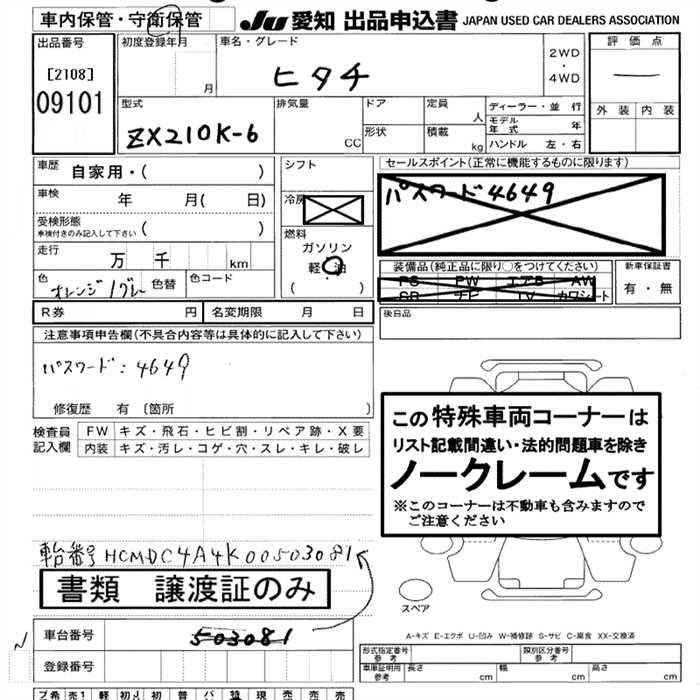 車内保管・守衛保管
JU 愛知 出品申込書 JAPAN USED CAR DEALERS ASSOCIATION
出品番号
[2108]
09101
初度登録年月
月
車名・グレード
ヒタチ
2WD
・
4WD
評価点
外装 内装
型式
ZX210K-6
排気量
CC
ドア
形状
定員
人
積載
kg
ディーラー・並行
モデル年式 年
ハンドル 左・右
車歴 自家用・( )
車検 年 月( 日)
受検形態
車検付きのみ記入して下さい ( )
走行 万 千 km
色 オレンジ/グレー 色替 色コード
シフト
冷房
燃料
ガソリン
軽・油
( )
セールスポイント(正常に機能するものに限ります)
パスワード4649
装備品(純正品に限り○をつけてください)
PS PW エアB AW
SR ナビ TV カワシート
新車保証書
有・無
R券 円 名変期限 月 日
後日品
注意事項申告欄(不具合内容等は具体的に記入して下さい)
パスワード:4649
修復歴 有 〔箇所 〕
検査員記入欄
FW キズ・飛石・ヒビ割・リペア跡・X要
内装 キズ・汚レ・コゲ・穴・スレ・キレ・破レ
この特殊車両コーナーは
リスト記載間違い・法的問題車を除き
ノークレームです
※このコーナーは不動車も含みますので
ご注意ください
車台番号HCMDC4A4K00503081
書類 譲渡証のみ
スペア
車台番号 503081
登録番号
A-キズ E-エクボ U-凹み W-補修跡 S-サビ C-腐食 XX-交換済
形式指定番号
参考
類別区分番号
参考
車車証明用
参考
長さ cm
幅 cm
高さ cm